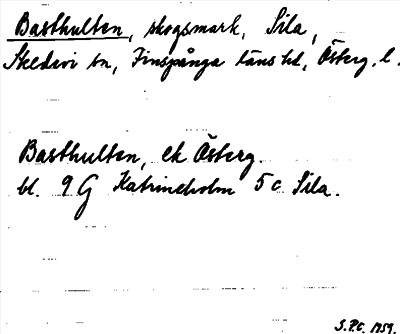 Basthulten, skogsmark, Sila,
Skedevi sn, Finspånga läns hd, Österg. l.
Basthulten, ek Österg.
bl. 9 G Katrineholm 5 c Sila.
S.P.C. 1959.